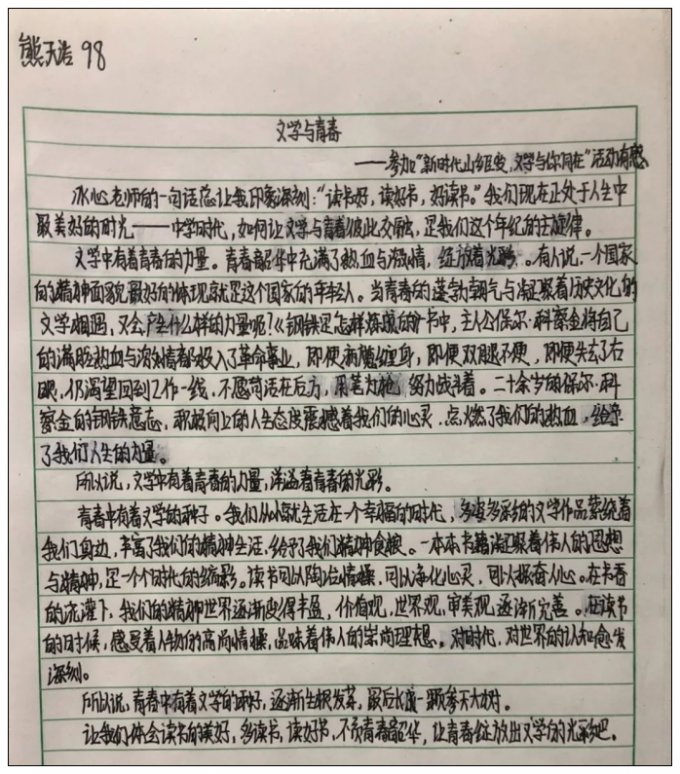 熊天浩 98
文学与青春
——参加“新时代山乡巨变，文学与你同在”活动有感
冰心老师的一句话总让我印象深刻：“读书好，读好书，好读书。”我们现在正处于人生中
最美好的时光——中学时代，如何让文学与青春彼此交融，是我们这个年纪的主旋律。
文学中有着青春的力量。青春韶华中充满了热血与激情，绽放着光彩。有人说，一个国家
的精神面貌最好的体现就是这个国家的年轻人。当青春的蓬勃朝气与凝聚着历史文化的
文学相遇，又会产生什么样的力量呢？《钢铁是怎样炼成的》书中，主人公保尔·柯察金将自己
的满腔热血与激情都投入了革命事业，即便病魔缠身，即便双腿不便，即便失去了右
眼，仍渴望回到工作一线，不愿苟活在后方，用笔为枪努力战斗着。二十余岁的保尔·柯
察金的钢铁意志，积极向上的人生态度震撼着我们的心灵，点燃了我们的热血，给予
了我们人生的力量。
所以说，文学中有着青春的力量，洋溢着青春的光彩。
青春中有着文学的种子。我们从小就生活在一个幸福的时代，多姿多彩的文学作品萦绕着
我们身边，丰富了我们的精神生活，给予了我们精神食粮。一本本书籍凝聚着伟人的思想
与精神，是一个个时代的缩影。读书可以陶冶情操，可以净化心灵，可以振奋人心。在书香
的浇灌下，我们的精神世界逐渐变得丰盈，价值观，世界观，审美观逐渐完善。在读书
的时候，感受着人物的高尚情操，品味着伟人的崇尚理想。对时代，对世界的认知愈发
深刻。
所以说，青春中有着文学的种籽，逐渐生根发芽，最后长成一颗参天大树。
让我们体会读书的美好，多读书，读好书，不负青春韶华，让青春绽放出文学的光彩吧。